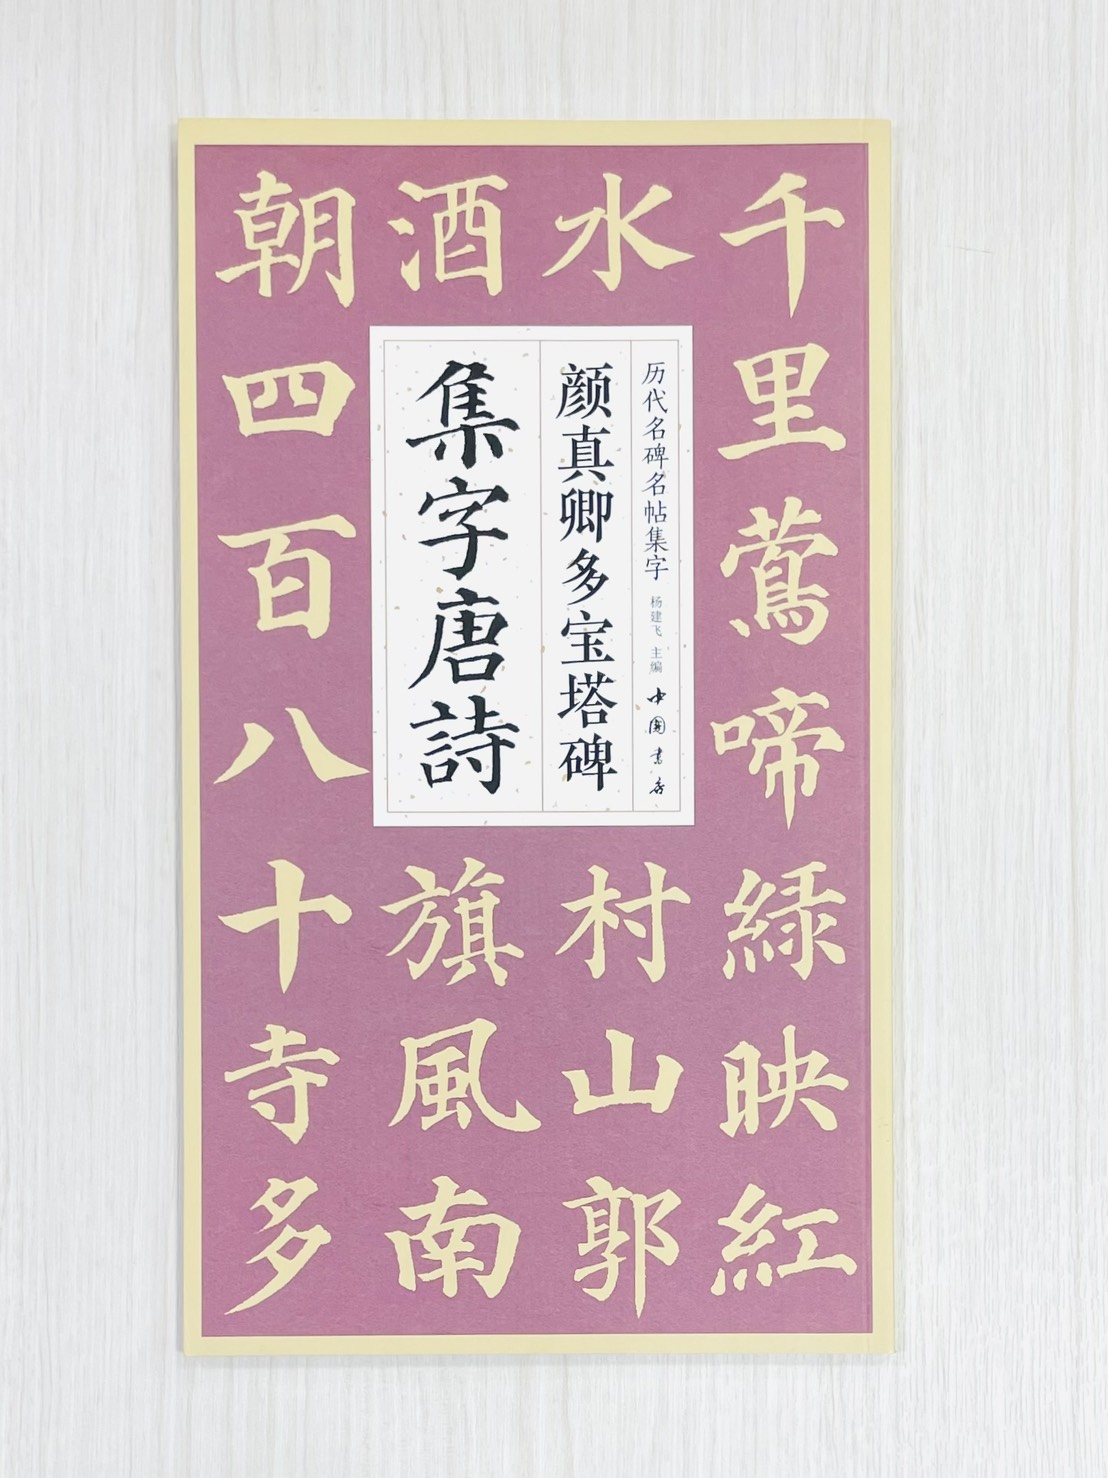 千里莺啼綠映紅
水
村山郭
酒
旗風南
朝四百八十寺多
历代名碑名帖集字
杨建飞 主编
中国书店
颜真卿多宝塔碑
集字唐詩